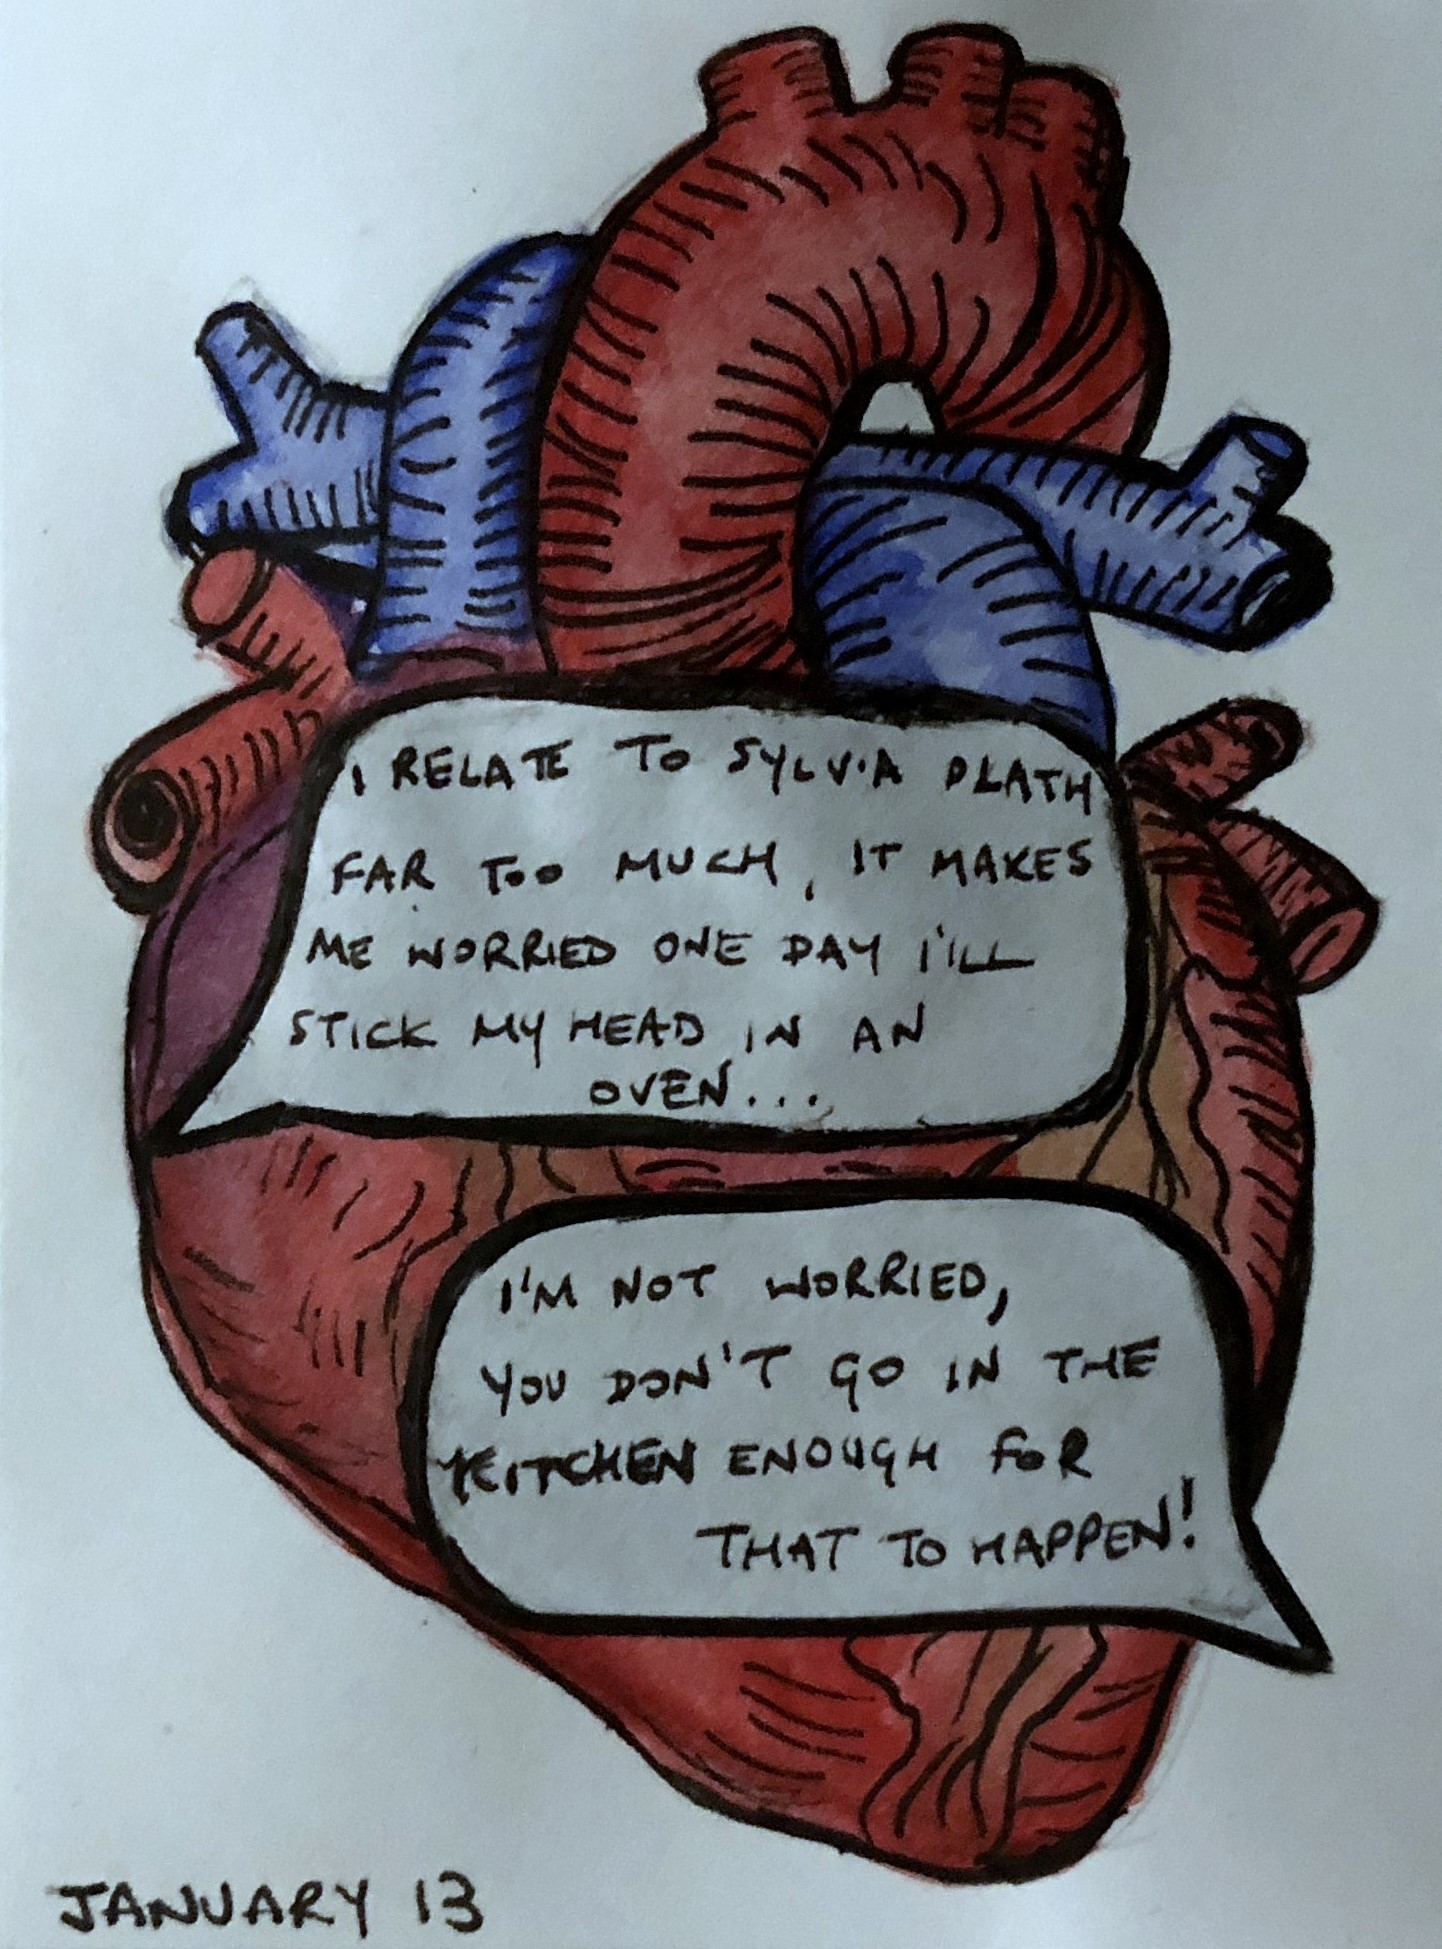 I RELATE TO SYLVIA PLATH
FAR TOO MUCH, IT MAKES
ME WORRIED ONE DAY I'LL
STICK MY HEAD IN AN
OVEN...
I'M NOT WORRIED,
YOU DON'T GO IN THE
KITCHEN ENOUGH FOR
THAT TO HAPPEN!
JANUARY 13